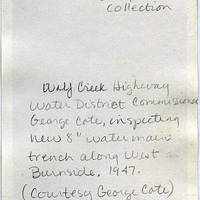 collection
Wolf Creek Highway
Water District Commissioner
George Cote, inspecting
new 8" water main
trench along West
Burnside, 1947.
(Courtesy George Cote)